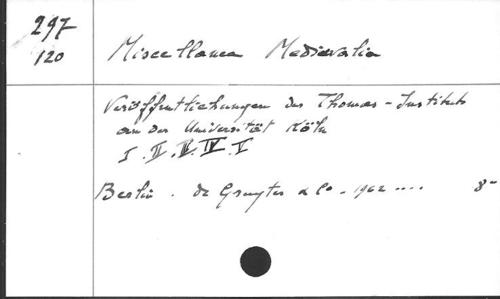 297
120
Miscellanea Mediaevalia
Veröffentlichungen des Thomas-Instituts
an der Universität Köln
I. II. III. IV. V
Berlin. de Gruyter & Co. 1962 .... 8°